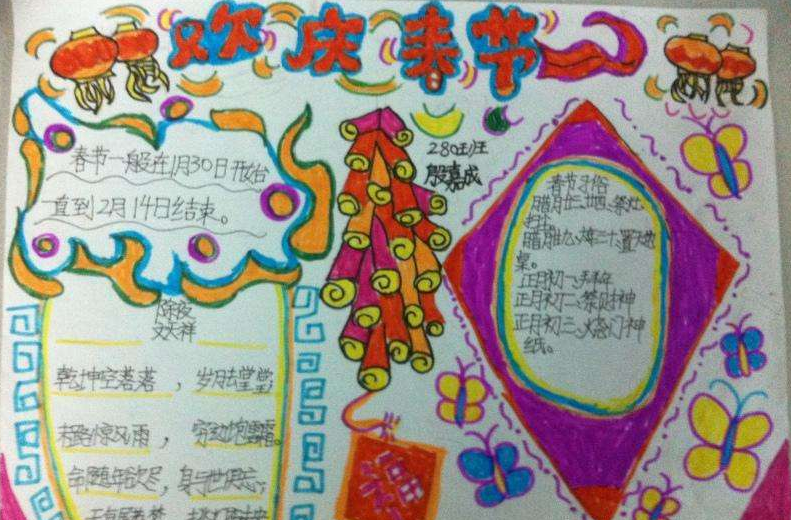 欢庆春节
春节一般在1月30日开始
直到2月14日结束。
280班
殷嘉成
除夜
文天祥
乾坤空落落，岁月去堂堂；
末路惊风雨，穷边饱雪霜。
命随年欲尽，身与世俱忘；
春节习俗
腊月廿三、廿四、祭灶
扫土
桌。
正月初一、拜年
正月初二、祭财神
正月初三、烧门神
纸。